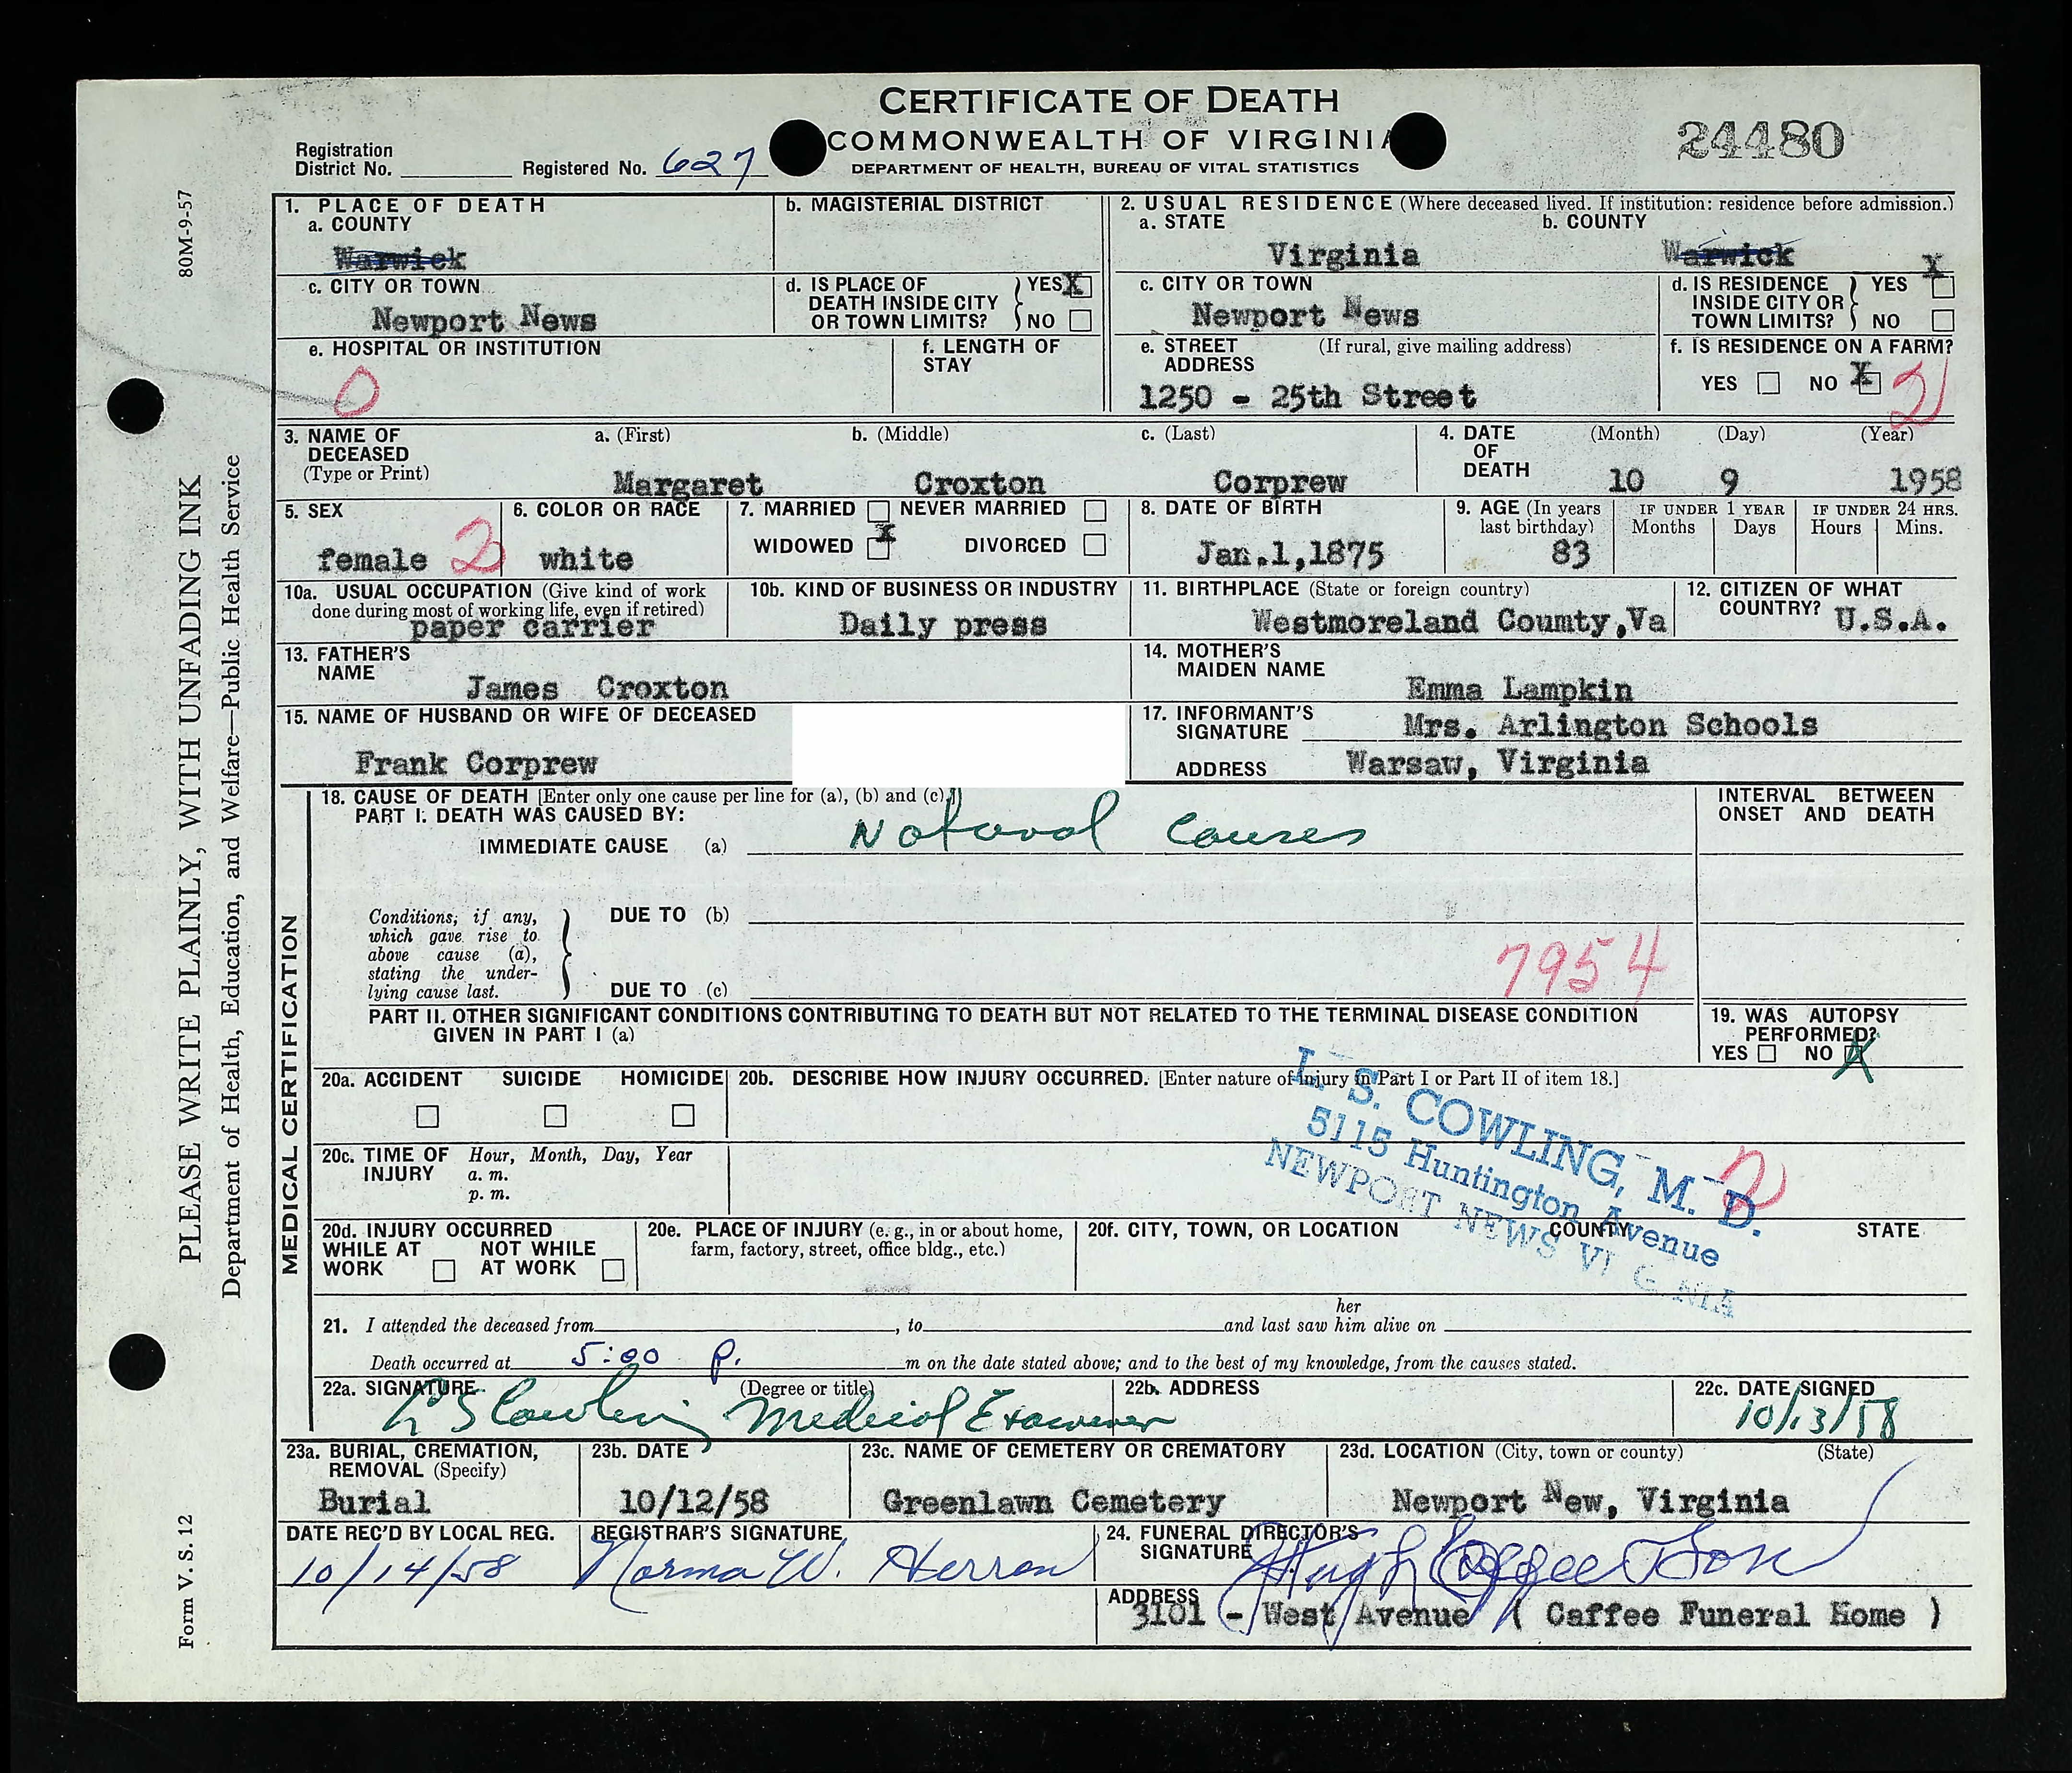 CERTIFICATE OF DEATH
COMMONWEALTH OF VIRGINIA
DEPARTMENT OF HEALTH, BUREAU OF VITAL STATISTICS
24480
Registration
District No. Registered No. 627
80M-9-57
PLEASE WRITE PLAINLY, WITH UNFADING INK
Department of Health, Education, and Welfare—Public Health Service
Form V. S. 12
1. PLACE OF DEATH
a. COUNTY
Warwick
b. MAGISTERIAL DISTRICT
c. CITY OR TOWN
Newport News
d. IS PLACE OF YES X
DEATH INSIDE CITY
OR TOWN LIMITS? NO
e. HOSPITAL OR INSTITUTION
0
f. LENGTH OF
STAY
2. USUAL RESIDENCE (Where deceased lived. If institution: residence before admission.)
a. STATE
Virginia
b. COUNTY
Warwick
c. CITY OR TOWN
Newport News
d. IS RESIDENCE YES X
INSIDE CITY OR
TOWN LIMITS? NO
e. STREET (If rural, give mailing address)
ADDRESS
1250 - 25th Street
f. IS RESIDENCE ON A FARM?
YES NO X
3. NAME OF a. (First) b. (Middle) c. (Last)
DECEASED
(Type or Print)
Margaret Croxton Corprew
4. DATE (Month) (Day) (Year)
OF
DEATH 10 9 1958
5. SEX
female 2
6. COLOR OR RACE
white
7. MARRIED NEVER MARRIED
WIDOWED X DIVORCED
8. DATE OF BIRTH
Jan.1,1875
9. AGE (In years
last birthday)
83
IF UNDER 1 YEAR
Months Days
IF UNDER 24 HRS.
Hours Mins.
10a. USUAL OCCUPATION (Give kind of work
done during most of working life, even if retired)
paper carrier
10b. KIND OF BUSINESS OR INDUSTRY
Daily press
11. BIRTHPLACE (State or foreign country)
Westmoreland Coumty,Va
12. CITIZEN OF WHAT
COUNTRY? U.S.A.
13. FATHER'S
NAME
James Croxton
14. MOTHER'S
MAIDEN NAME
Emma Lampkin
15. NAME OF HUSBAND OR WIFE OF DECEASED
Frank Corprew
17. INFORMANT'S
SIGNATURE Mrs. Arlington Schools
ADDRESS Warsaw, Virginia
MEDICAL CERTIFICATION
18. CAUSE OF DEATH [Enter only one cause per line for (a), (b) and (c).]
PART I. DEATH WAS CAUSED BY:
IMMEDIATE CAUSE (a) Natural Causes
INTERVAL BETWEEN
ONSET AND DEATH
Conditions, if any,
which gave rise to
above cause (a),
stating the under-
lying cause last.
DUE TO (b)
DUE TO (c)
7954
PART II. OTHER SIGNIFICANT CONDITIONS CONTRIBUTING TO DEATH BUT NOT RELATED TO THE TERMINAL DISEASE CONDITION
GIVEN IN PART I (a)
19. WAS AUTOPSY
PERFORMED?
YES NO X
20a. ACCIDENT SUICIDE HOMICIDE
20b. DESCRIBE HOW INJURY OCCURRED. [Enter nature of Injury in Part I or Part II of item 18.]
L. S. COWLING, M. D.
5115 Huntington Avenue
NEWPORT NEWS VI G NIA
2
20c. TIME OF Hour, Month, Day, Year
INJURY a. m.
p. m.
20d. INJURY OCCURRED
WHILE AT NOT WHILE
WORK AT WORK
20e. PLACE OF INJURY (e. g., in or about home,
farm, factory, street, office bldg., etc.)
20f. CITY, TOWN, OR LOCATION COUNTY STATE
her
21. I attended the deceased from , to and last saw him alive on
Death occurred at 5:00 P. m on the date stated above; and to the best of my knowledge, from the causes stated.
22a. SIGNATURE (Degree or title)
L S Cowling Medical Examiner
22b. ADDRESS
22c. DATE SIGNED
10/13/58
23a. BURIAL, CREMATION,
REMOVAL (Specify)
Burial
23b. DATE
10/12/58
23c. NAME OF CEMETERY OR CREMATORY
Greenlawn Cemetery
23d. LOCATION (City, town or county) (State)
Newport New, Virginia
DATE REC'D BY LOCAL REG.
10/14/58
REGISTRAR'S SIGNATURE
Norma W. Herron
24. FUNERAL DIRECTOR'S
SIGNATURE
ADDRESS
3101 - West Avenue ( Caffee Funeral Home )